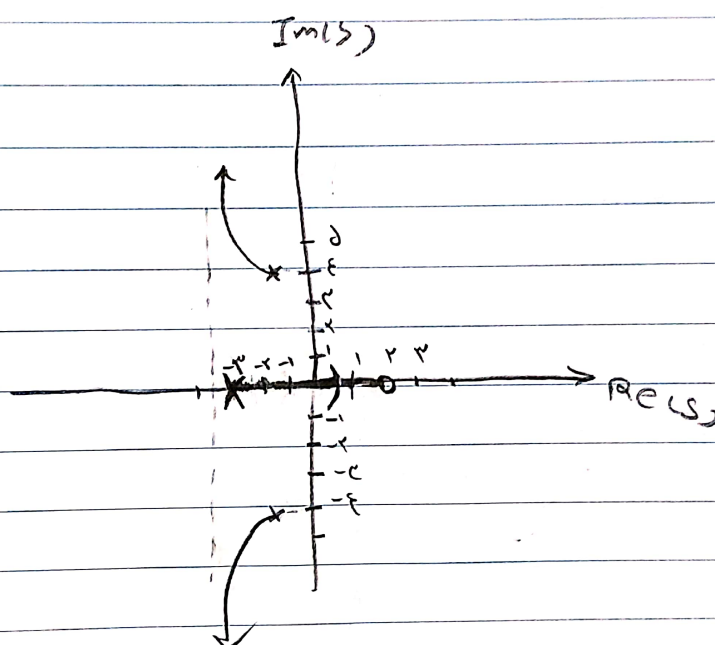 Im(s)
۵
۴
۳
۲
۱
-۳ -۲ -۱ ۱ ۲ ۳
Re(s)
-۱
-۲
-۳
-۴